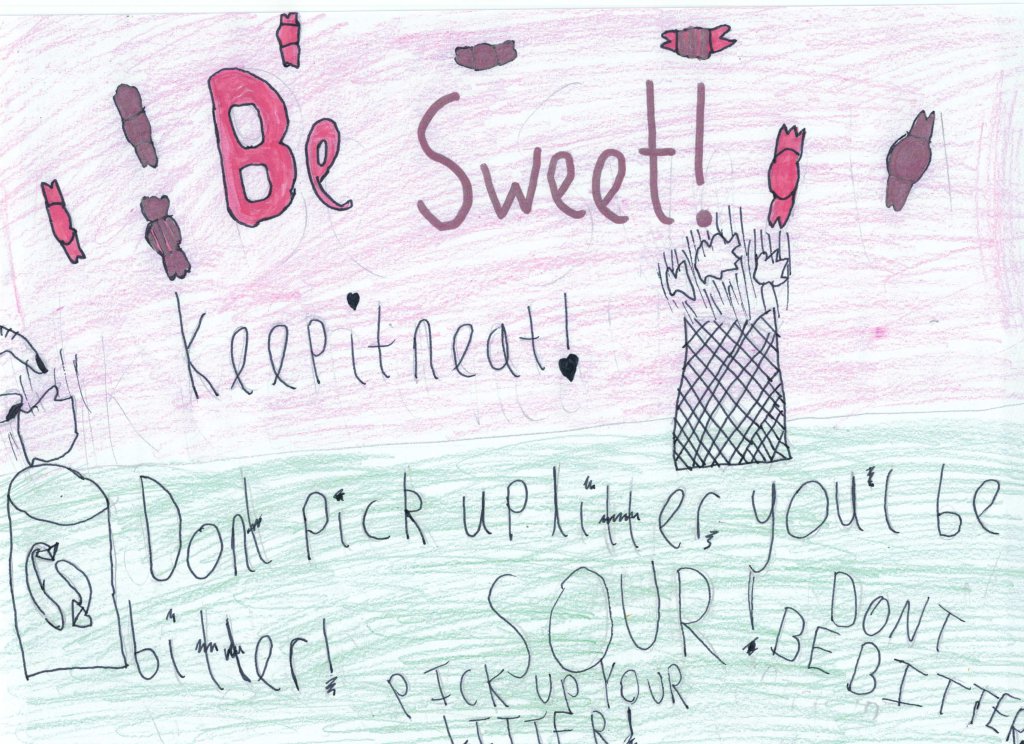 Be Sweet!
Keep it neat!
Dont pick up litter, you'l be
bitter!
SOUR!
DONT
BE BITTER
PICK UP YOUR
LITTER!